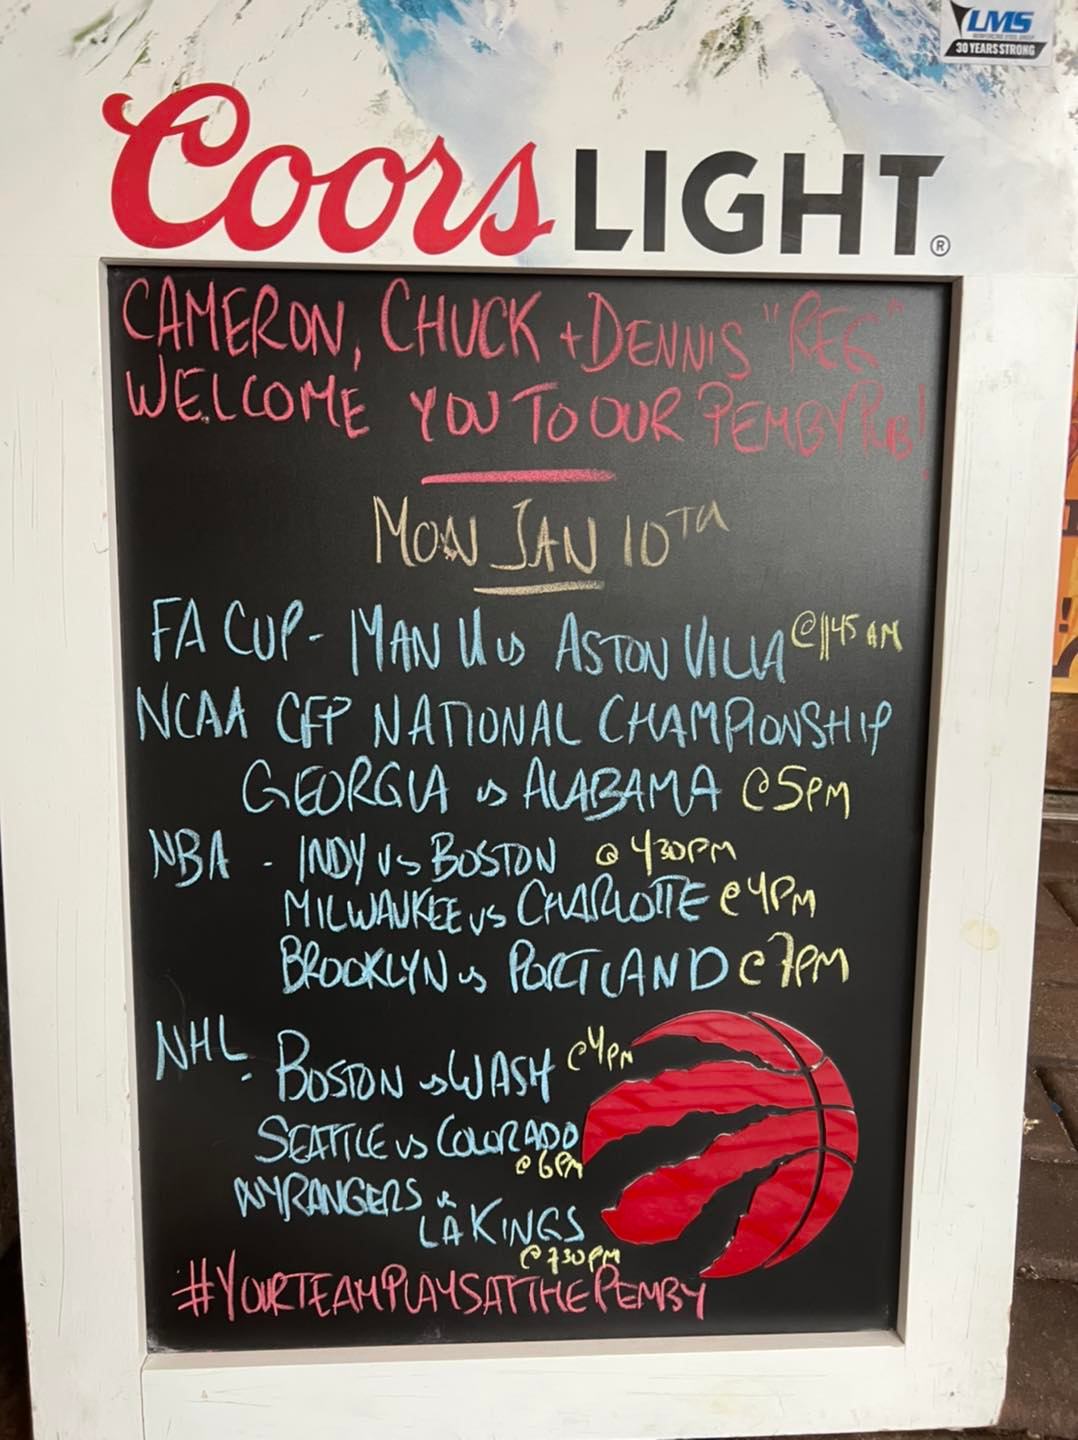 LMS
30 YEARS STRONG
Coors LIGHT®
CAMERON, CHUCK + DENNIS "REG"
WELCOME YOU TO OUR PEMBY PUB!
MON JAN 10TH
FA CUP - MAN U vs ASTON VILLA @ 1145 AM
NCAA CFP NATIONAL CHAMPIONSHIP
GEORGIA vs ALABAMA @ 5PM
NBA - INDY vs BOSTON @ 430PM
MILWAUKEE vs CHARLOTTE @ 4PM
BROOKLYN vs PORTLAND @ 7PM
NHL - BOSTON vs WASH @ 4PM
SEATTLE vs COLORADO
@ 6PM
NYRANGERS vs
LA KINGS
@ 730PM
#YOURTEAMPLAYSATTHEPEMBY